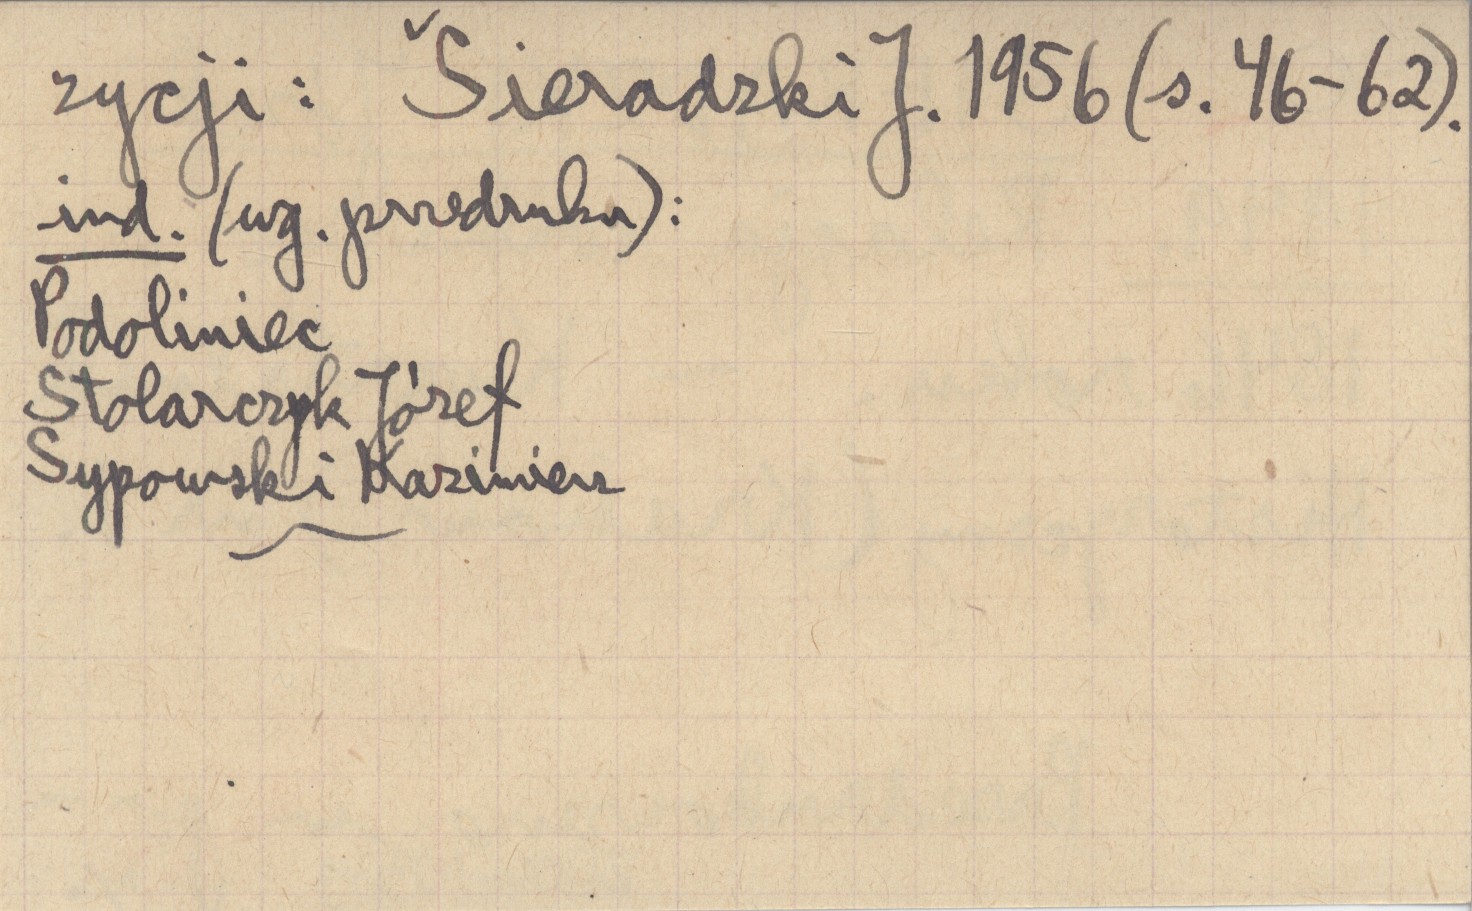 zycji: ˅Sieradzki J. 1956 (s. 46-62).
ind. (wg. przedruku):
Podoliniec
Stolarczyk Józef
Sypowski Kazimierz